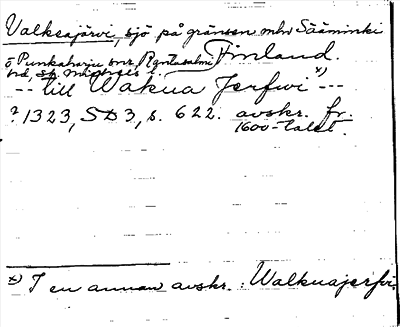 Valkeajärvi, sjö på gränsen mhv Sääminki
o Punkaharju snr, Rantasalmi Finland.
hd, S:t Michels l.
-- till Wakua Jerfwi x) --
? 1323, SD 3, s. 622. avskr. fr.
1600-talet.
x) I en annan avskr.: Walkuajerfvi.